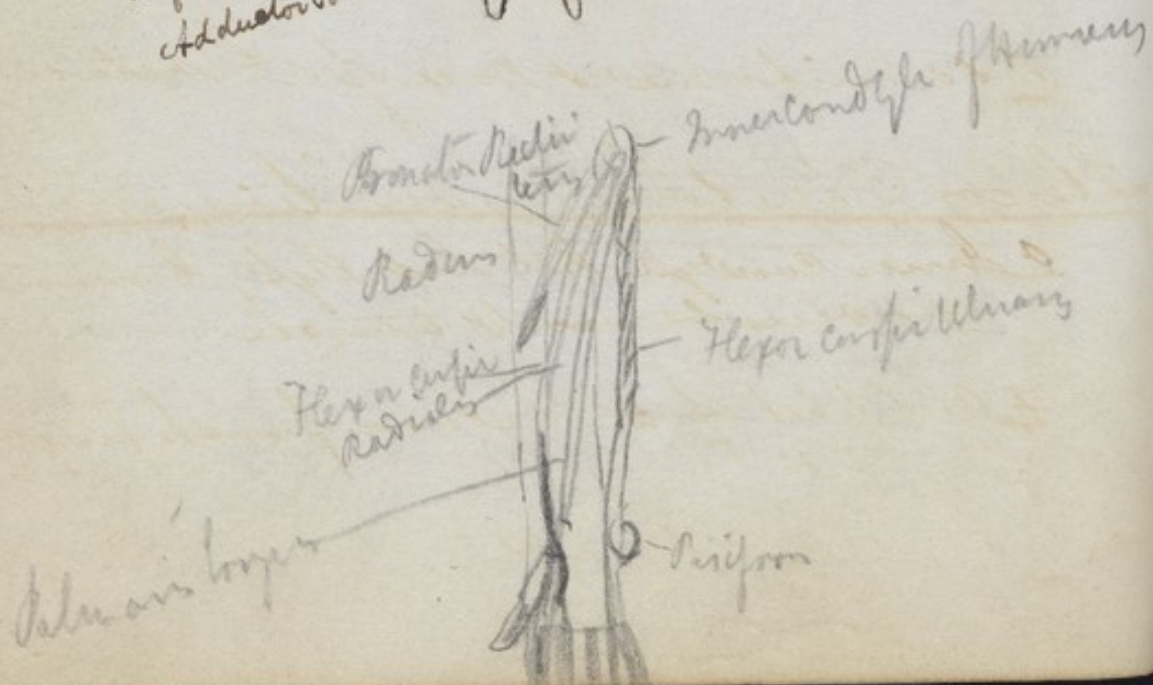 Adductor
Inner Condyle of Humerus
Pronator Radii
teres
Radius
Flexor carpi Ulnaris
Flexor carpi
radialis
Palmaris longus
Pisiform